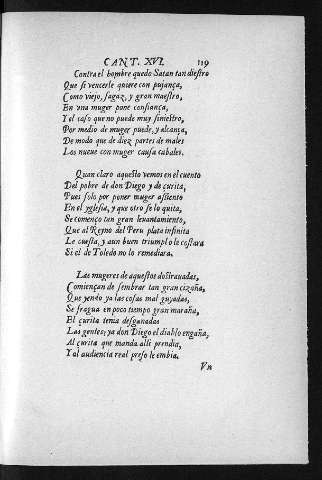 CANT. XVI. 119
Contra el hombre quedo Satan tan diestro
Que si vencerle quiere con pujança,
Como viejo, sagaz, y gran maestro,
En vna muger pone confiança,
Y el caso que no puede muy siniestro,
Por medio de muger puede, y alcança,
De modo que de diez partes de males
Los nueue con muger causa cabales.
Quan claro aquesto vemos en el cuento
Del pobre de don Diego y de çurita,
Pues solo por poner muger assiento
En el yglesia, y que otro se lo quita,
Se començo tan gran leuantamiento,
Que al Reyno del Peru plata infinita
Le cuesta, y aun buen triumpho le costara
Si el de Toledo no lo remediara.
Las mugeres de aquestos dos trauadas,
Comiençan de sembrar tan gran cizaña,
Que yendo ya las cosas mal guiadas,
Se fragua en poco tiempo gran maraña,
El çurita tenia desganadas
Las gentes; ya don Diego el diablo engaña,
Al çurita que manda alli prendia,
Y al audiencia real preso le embia.
Vn